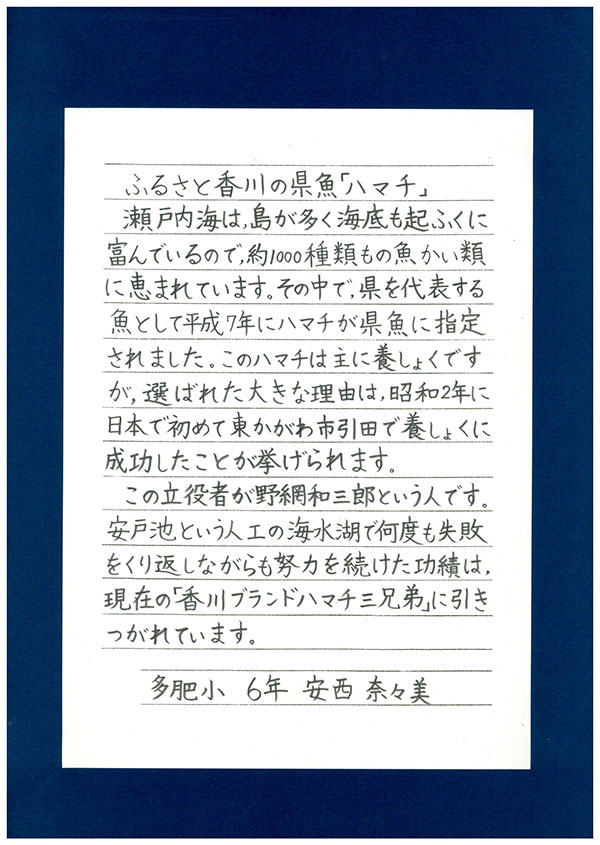 ふるさと香川の県魚「ハマチ」
瀬戸内海は,島が多く海底も起ふくに
富んでいるので,約1000種類もの魚かい類
に恵まれています。その中で,県を代表する
魚として平成7年にハマチが県魚に指定
されました。このハマチは主に養しょくです
が,選ばれた大きな理由は,昭和2年に
日本で初めて東かがわ市引田で養しょくに
成功したことが挙げられます。
この立役者が野網和三郎という人です。
安戸池という人工の海水湖で何度も失敗
をくり返しながらも努力を続けた功績は,
現在の「香川ブランドハマチ三兄弟」に引き
つがれています。
多肥小 6年 安西 奈々美